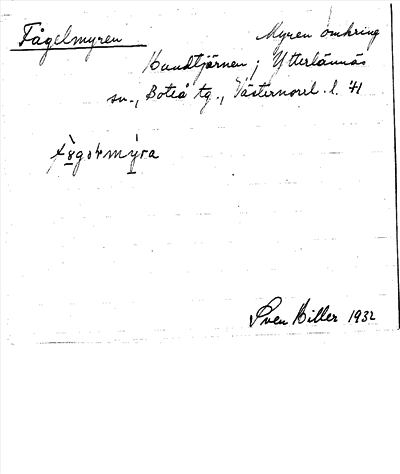 Fågelmyren Myren omkring
Hundtjärnen; Ytterlännäs
sn., Boteå tg., Västernorrl. l. 41
Sven Hiller 1932